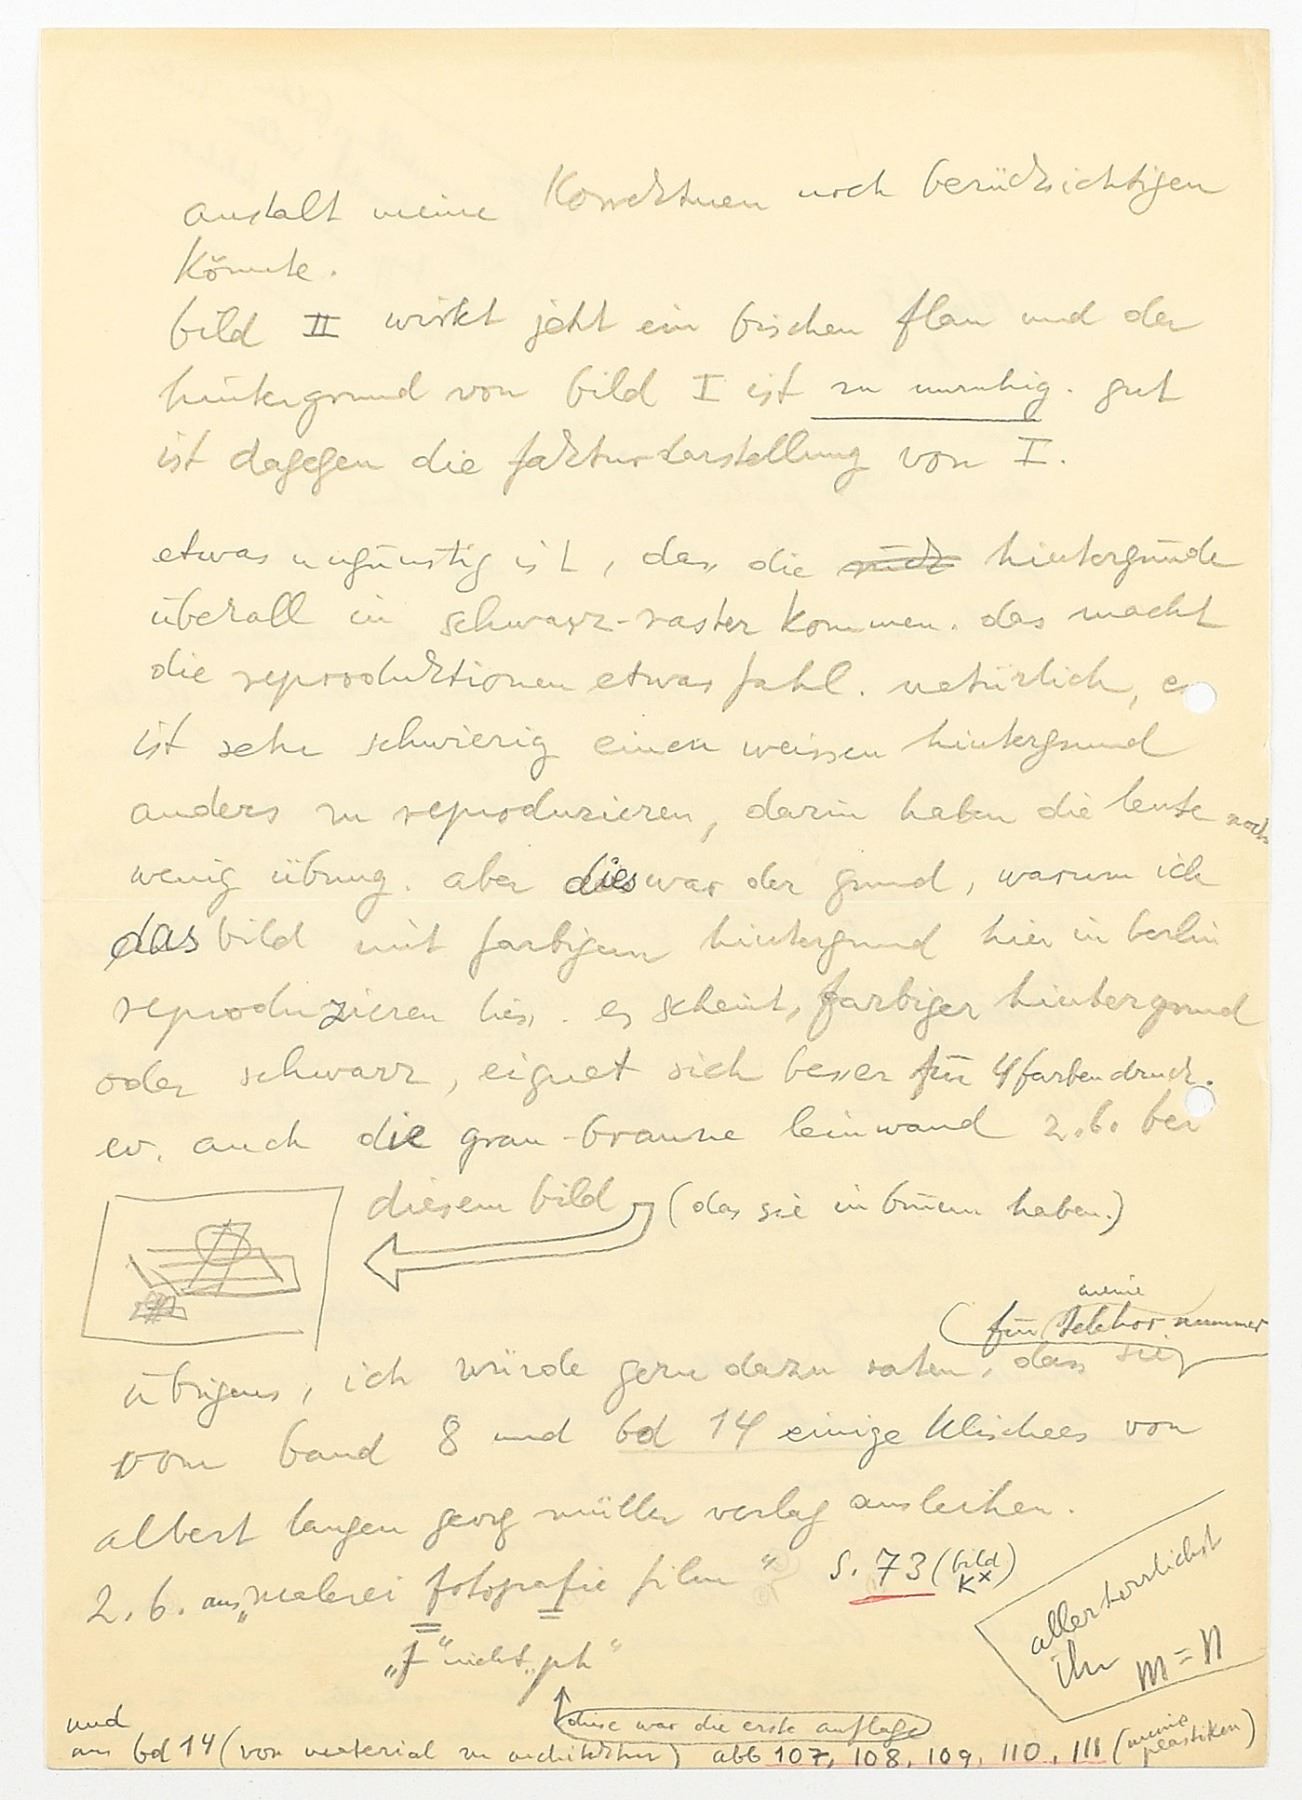 anstalt meine Korrekturen noch berücksichtigen
könnte.
bild II wirkt jetzt ein bischen flau und der
hintergrund von bild I ist zu unruhig. gut
ist dagegen die fakturdarstellung von I.
etwas ungünstig ist, dass die rück hintergründe
überall in schwarz-raster kommen. das macht
die reproduktionen etwas fahl. natürlich, es
ist sehr schwierig einen weissen hintergrund
anders zu reproduzieren, darin haben die leute noch
wenig übung. aber dies war der grund, warum ich
das bild mit farbigem hintergrund hier in berlin
reproduzieren liess. es scheint, farbiger hintergrund
oder schwarz, eignet sich besser für 4farbendruck.
ev. auch die grau-braune leinwand z.b. bei
diesem bild (das sie in brünn haben.)
(für meine telehor nummer
übrigens, ich würde gern dazu raten, dass sie
vom band 8 und bd 14 einige klischees von
albert langen georg müller verlag ausleihen.
z.b. aus „malerei fotografie film“ S. 73 (bild K×)
„f“ nicht „ph“
allerherzlichst
ihr m=n
diese war die erste auflage
und
aus bd 14 (von material zu architektur) abb 107, 108, 109, 110, 111 (meine plastiken)